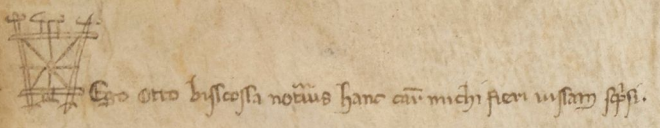 Ego otto bisscossa not̃ius hanc car̃ michi fieri iussam sp̃si.